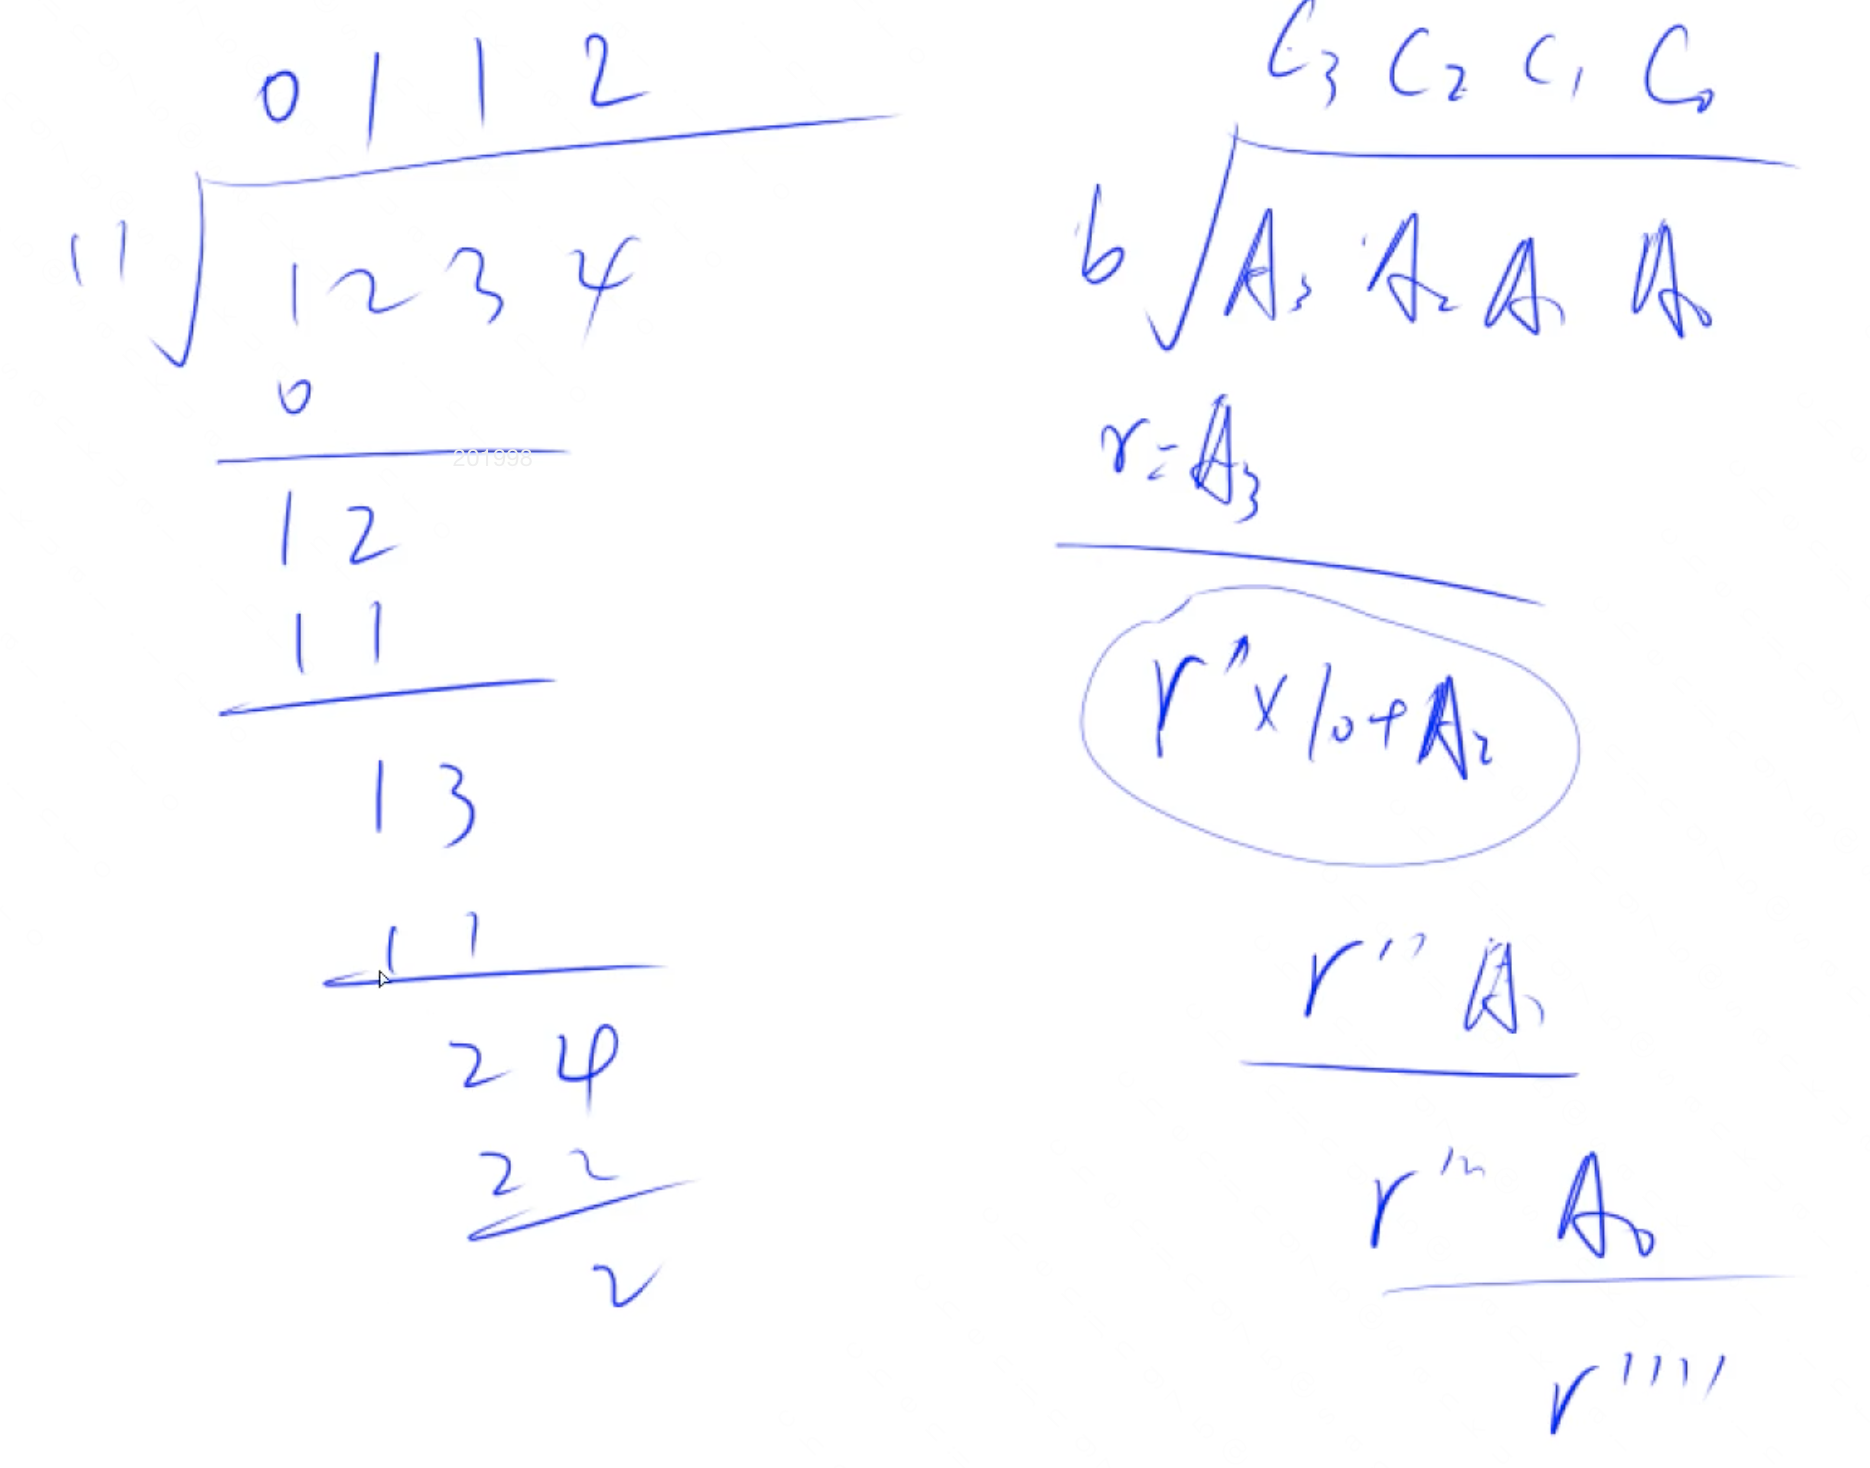 0 1 1 2
11 1 2 3 4
0
1 2
1 1
1 3
1 1
2 4
2 2
2
C3 C2 C1 C0
b A3 A2 A1 A0
r = A3
r' x 10 + A2
r'' A1
r''' A0
r''''
201998